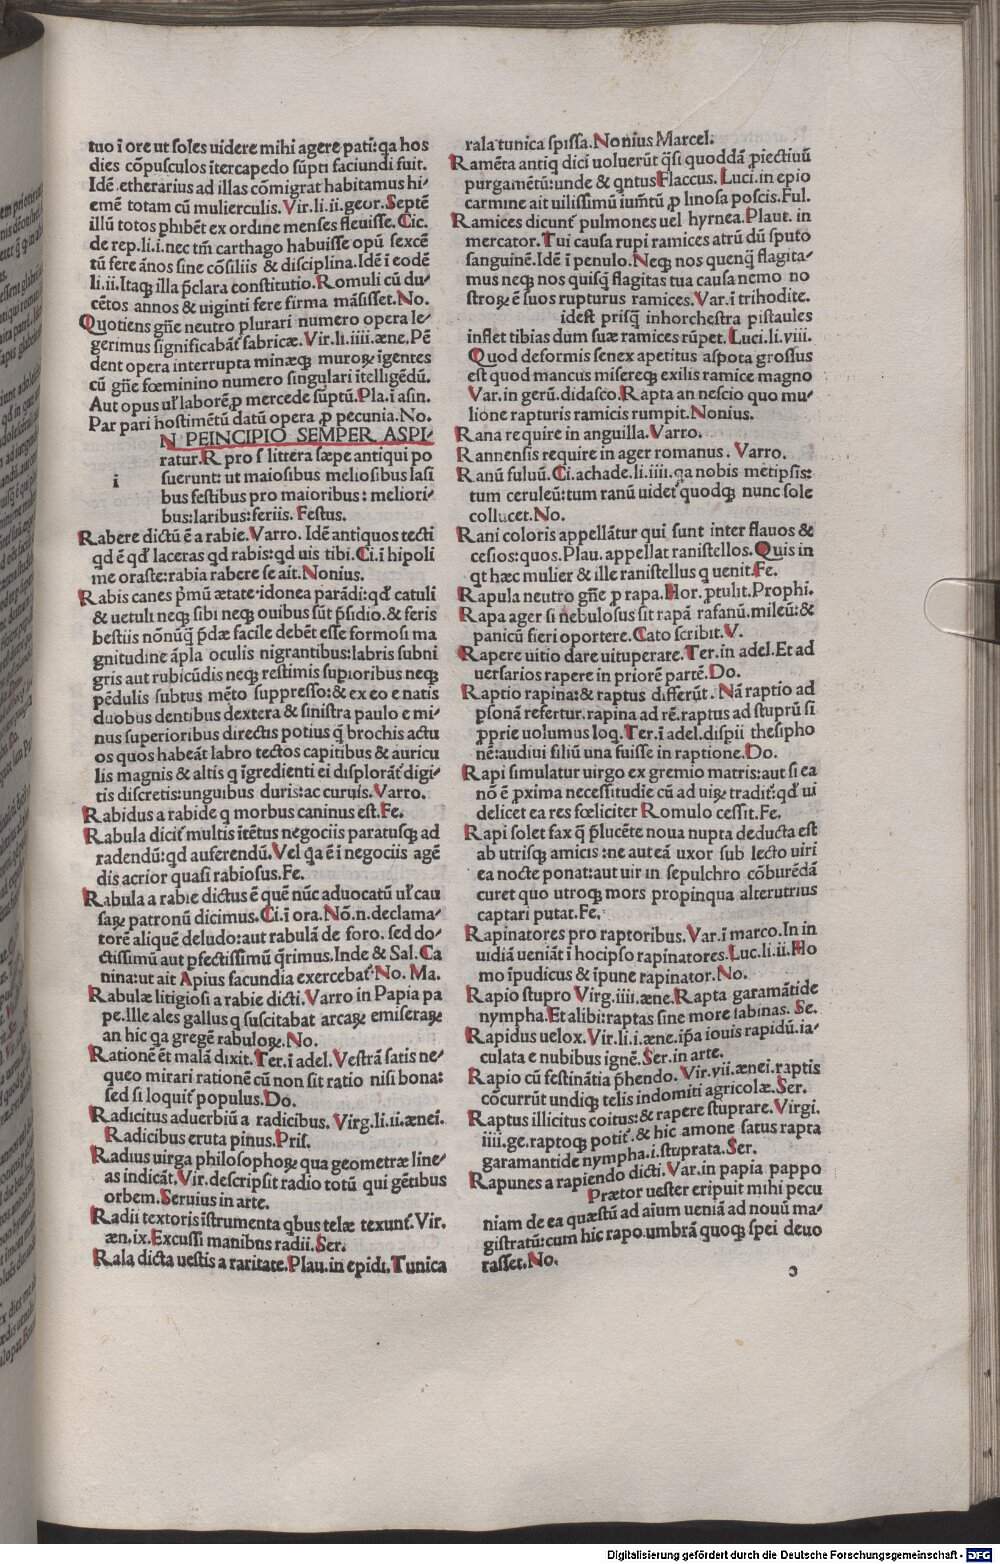 tuo ī ore ut soles uidere mihi agere pati: qa hos
dies cōpusculos ītercapedo sūpti faciundi fuit.
Idē etherarius ad illas cōmigrat habitamus hi⸗
emē totam cū mulierculis. Vir.li.ii.geor. Septē
illū totos phibēt ex ordine menses fleuisse. Cic.
de rep.li.i.nec tm̄ carthago habuisse opū sexcē
tū fere ānos sine cōsiliis & disciplina. Idē ī eodē
li.ii. Itaqꝫ illa p̄clara constitutio. Romuli cū du⸗
cētos annos & uiginti fere firma māsisset. No.
Quotiens gn̄e neutro plurari numero opera le⸗
gerimus significabāt fabricæ. Vir.li.iiii.æne. Pē
dent opera interrupta minæqꝫ muroꝝ īgentes
cū gn̄e fœminino numero singulari ītelligēdū.
Aut opus ul̄ laborē ꝑ mercede sūptū. Pla.ī asin.
Par pari hostimētū datū opera ꝑ pecunia. No.
N PEINCIPIO SEMPER ASPI⸗
ratur. R pro s littera sæpe antiqui po
i
suerunt: ut maiosibus meliosibus lasi
bus festibus pro maioribus: meliori⸗
bus: laribus: feriis. Festus.
Rabere dictū ē a rabie. Varro. Idē antiquos tecti
qd ē qd' laceras qd rabis: qd uis tibi. Ci.ī hipoli
me oraste: rabia rabere se ait. Nonius.
Rabis canes p̄mū ætate idonea parādi: qd' catuli
& uetuli neqꝫ sibi neqꝫ ouibus sūt p̄sidio. & feris
bestiis nōnūq̄ p̄dæ facile debēt esse formosi ma
gnitudine āpla oculis nigrantibus: labris subni
gris aut rubicūdis neqꝫ restimis supioribus neqꝫ
pēdulis subtus mēto suppresso: & ex eo enatis
duobus dentibus dextera & sinistra paulo e mi⸗
nus superioribus directus potius q̄ brochis actu
os quos habeāt labro tectos capitibus & auricu
lis magnis & altis q īgredienti ei displorāt' digi⸗
tis discretis: unguibus duris: ac curuis. Varro.
Rabidus a rabide q morbus caninus est. Fe.
Rabula dicit' multis ītētus negociis paratusqꝫ ad
radendū: qd auferendū. Vel qa ē ī negociis agē
dis acrior quasi rabiosus. Fe.
Rabula a rabie dictus ē quē nūc aduocatū ul̄ cau
saꝝ patronū dicimus. Ci.ī ora. Nō.n. declama⸗
torē aliquē deludo: aut rabulā de foro. sed do⸗
ctissimū aut pfectissimū qrimus. Inde & Sal. Ca
nina: ut ait Apius facundia exercebat' No. Ma.
Rabulæ litigiosi a rabie dicti. Varro in Papia pa
pe. Ille ales gallus q suscitabat arcaꝝ emiseraꝝ
an hic qa gregē rabuloꝝ. No.
Rationē ēt malā dixit. Ter.ī adel. Vestrā satis ne⸗
queo mirari rationē cū non sit ratio nisi bona:
sed si loquit' populus. Do.
Radicitus aduerbiū a radicibus. Virg.li.ii.ænei.
Radicibus eruta pinus. Pris.
Radius uirga philosophoꝝ qua geometræ line⸗
as indicāt. Vir. descripsit radio totū qui gētibus
orbem. Seruius in arte.
Radii textoris īstrumenta qbus telæ texunt'. Vir.
æn.ix. Excussi manibus radii. Ser.
Rala dicta uestis a raritate. Plau.in epidi. Tunica
rala tunica spissa. Nonius Marcel.
Ramēta antiq dici uoluerūt q̄si quoddā piectiuū
purgamētū: unde & qntus Flaccus. Luci.in epio
carmine ait uilissimū iumtū ꝑ linosa poscis. Ful.
Ramices dicunt' pulmones uel hyrnea. Plaut. in
mercator. Tui causa rupi ramices atrū dū sputo
sanguinē. Idē ī penulo. Neqꝫ nos quenq̄ flagita⸗
mus neqꝫ nos quisq̄ flagitas tua causa nemo no
stroꝝ ē suos rupturus ramices. Var.ī trihodite.
idest prisq̄ inhorchestra pistaules
inflet tibias dum suæ ramices rūpet. Luci.li.viii.
Quod deformis senex apetitus aspota grossus
est quod mancus misereqꝫ exilis ramice magno
Var.in gerū.didasco. Rapta an nescio quo mu⸗
lione rapturis ramicis rumpit. Nonius.
Rana require in anguilla. Varro.
Rannensis require in ager romanus. Varro.
Ranū fuluū. Ci.achade.li.iiii.qa nobis metipsis:
tum ceruleū: tum ranū uidet' quodqꝫ nunc sole
collucet. No.
Rani coloris appellātur qui sunt inter flauos &
cesios: quos. Plau. appellat ranistellos. Quis in
qt hæc mulier & ille ranistellus q uenit. Fe.
Rapula neutro gn̄e ꝑ rapa. Hor. ptulit. Prophi.
Rapa ager si nebulosus sit rapā rafanū. mileū: &
panicū fieri oportere. Cato scribit. V.
Rapere uitio dare uituperare. Ter.in adel. Et ad
uersarios rapere in priorē partē. Do.
Raptio rapina: & raptus differūt. Nā raptio ad
psonā refertur. rapina ad rē. raptus ad stuprū si
pprie uolumus loq. Ter.ī adel. dispii thesipho
nē: audiui filiū una fuisse in raptione. Do.
Rapi simulatur uirgo ex gremio matris: aut si ea
nō ē pxima necessitudie cū ad uirꝝ tradit': qd' ui
delicet ea res fœliciter Romulo cessit. Fe.
Rapi solet fax q p̄lucēte noua nupta deducta est
ab utrisqꝫ amicis: ne aut eā uxor sub lecto uiri
ea nocte ponat: aut uir in sepulchro cōburēdā
curet quo utroqꝫ mors propinqua alterutrius
captari putat. Fe.
Rapinatores pro raptoribus. Var.ī marco. In in
uidiā ueniāt ī hocipso rapinatores. Luc.li.ii. Ho
mo īpudicus & īpune rapinator. No.
Rapio stupro Virg.iiii.æne. Rapta garamātide
nympha. Et alibi: raptas sine more sabinas. Se.
Rapidus uelox. Vir.li.i.æne. ip̄a iouis rapidū. ia⸗
culata e nubibus ignē. Ser. in arte.
Rapio cū festinātia p̄hendo. Vir.vii.ænei. raptis
cōcurrūt undiqꝫ telis indomiti agricolæ. Ser.
Raptus illicitus coitus: & rapere stuprare. Virgi.
iiii.ge. raptoqꝫ potit'. & hic amone satus rapta
garamantide nympha .i. stuprata. Ser.
Rapunes a rapiendo dicti. Var.in papia pappo
Prætor uester eripuit mihi pecu
niam de ea quæstū ad aium ueniā ad nouū ma⸗
gistratū: cum hic rapo umbrā quoqꝫ spei deuo
rasset. No.
ɔ
Digitalisierung gefördert durch die Deutsche Forschungsgemeinschaft - DFG